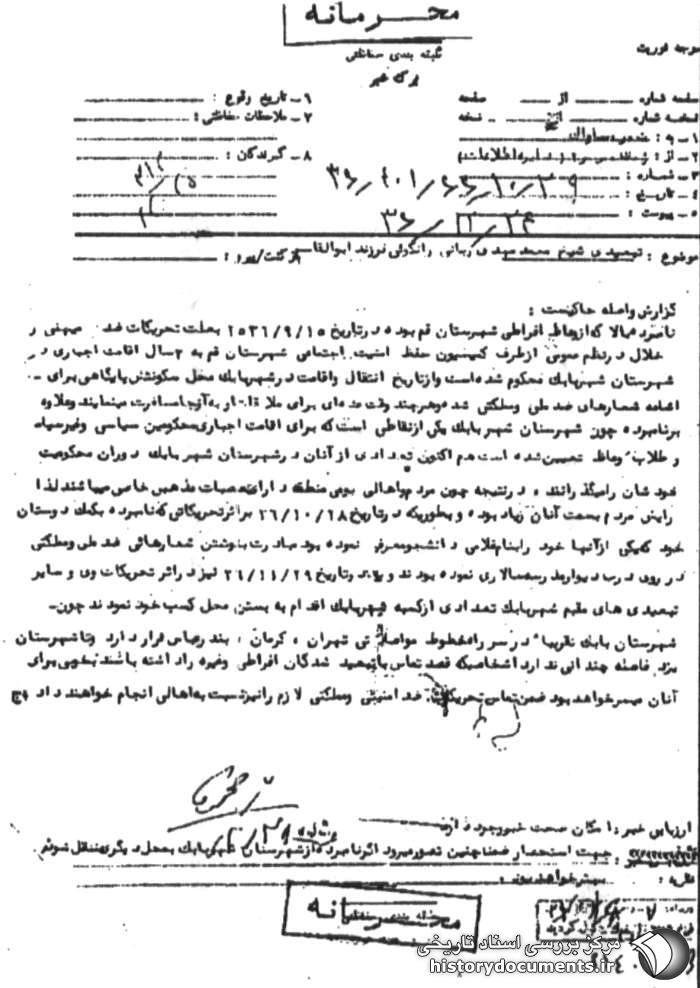 محرمانه
طبقه بندی حفاظتی
برگ خبر
درجه فوریت
صفحه شماره از صفحه
نسخه شماره از نسخه
۱ـ به :
۲ـ از :
۳ـ شماره :
۴ـ تاریخ :
۵ـ پیوست :
۶ـ تاریخ وقوع :
۷ـ ملاحظات حفاظتی :
۸ـ گیرندگان :
موضوع : تبعیدی شیخ محمد مهدی ربانی رانکوهی فرزند ابوالقاسم
بازگشت/پیرو :
گزارش واصله حاکیست :
نامبرده بالا که از وعاظ افراطی شهرستان قم بوده در تاریخ ۲۵۳۶/۹/۱۵ بعلت تحریکات ضد میهنی و
خلال در نظم عمومی از طرف کمیسیون حفظ امنیت اجتماعی شهرستان قم به ۲ سال اقامت اجباری در
شهرستان شهربابک محکوم شده است و از تاریخ انتقال و اقامت در شهربابک محل سکونتش پایگاهی برای ـ
اشاعه شعارهای ضد ملی و مملکتی شده و هر چند وقت عده ای برای ملاقات او به آنجا مسافرت مینمایند و علاوه
برنامبرده چون شهرستان شهربابک یکی از نقاطی است که برای اقامت اجباری محکومین سیاسی و غیر سیاسی
و طلاب وعاظ تعیین شده است هم اکنون تعدادی از آنان در شهرستان شهربابک دوران محکومیت
خودشان را میگذرانند و در نتیجه چون مردم و اهالی بومی منطقه دارای تعصبات مذهبی خاصی میباشند لذا
گرایش مردم بسمت آنان زیاد بوده و بطوریکه در تاریخ ۳۶/۱۰/۱۸ بر اثر تحریکاتی که نامبرده بکمک دوستان
خود که یکی از آنها خود را بنام غلامی دانشجو معرفی نموده بود مبادرت بنوشتن شعارهائی ضد ملی و مملکتی
در روی درب دیوار مدرسه سالاری نموده بودند و در تاریخ ۳۶/۱۱/۲۹ نیز در اثر تحریکات وی و سایر
تبعیدی های مقیم شهربابک تعدادی از کسبه شهربابک اقدام به بستن محل کسب خود نمودند چون ـ
شهرستان بابک تقریبا در سر راه خطوط مواصلاتی تهران ، کرمان ، بندرعباس قرار دارد و تا شهرستان
یزد فاصله چندانی ندارد اشخاصیکه قصد تماس با تبعید شدگان افراطی و غیره را داشته باشند بخوبی برای
آنان میسر خواهد بود ضمن تماس تحریکات ضد امنیتی و مملکتی لازم را نیز نسبت به اهالی انجام خواهند داد
ارزیابی خبر : امکان صحت خبر وجود دارد
جهت استحضار ضمنا چنین تصور میرود اگر نامبرده از شهرستان شهربابک به محل دیگری منتقل شود
نظریه : بهتر خواهد بود .
محرمانه
مرکز بررسی اسناد تاریخی
historydocuments.ir